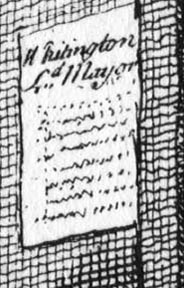 Whitington
Ld Mayor